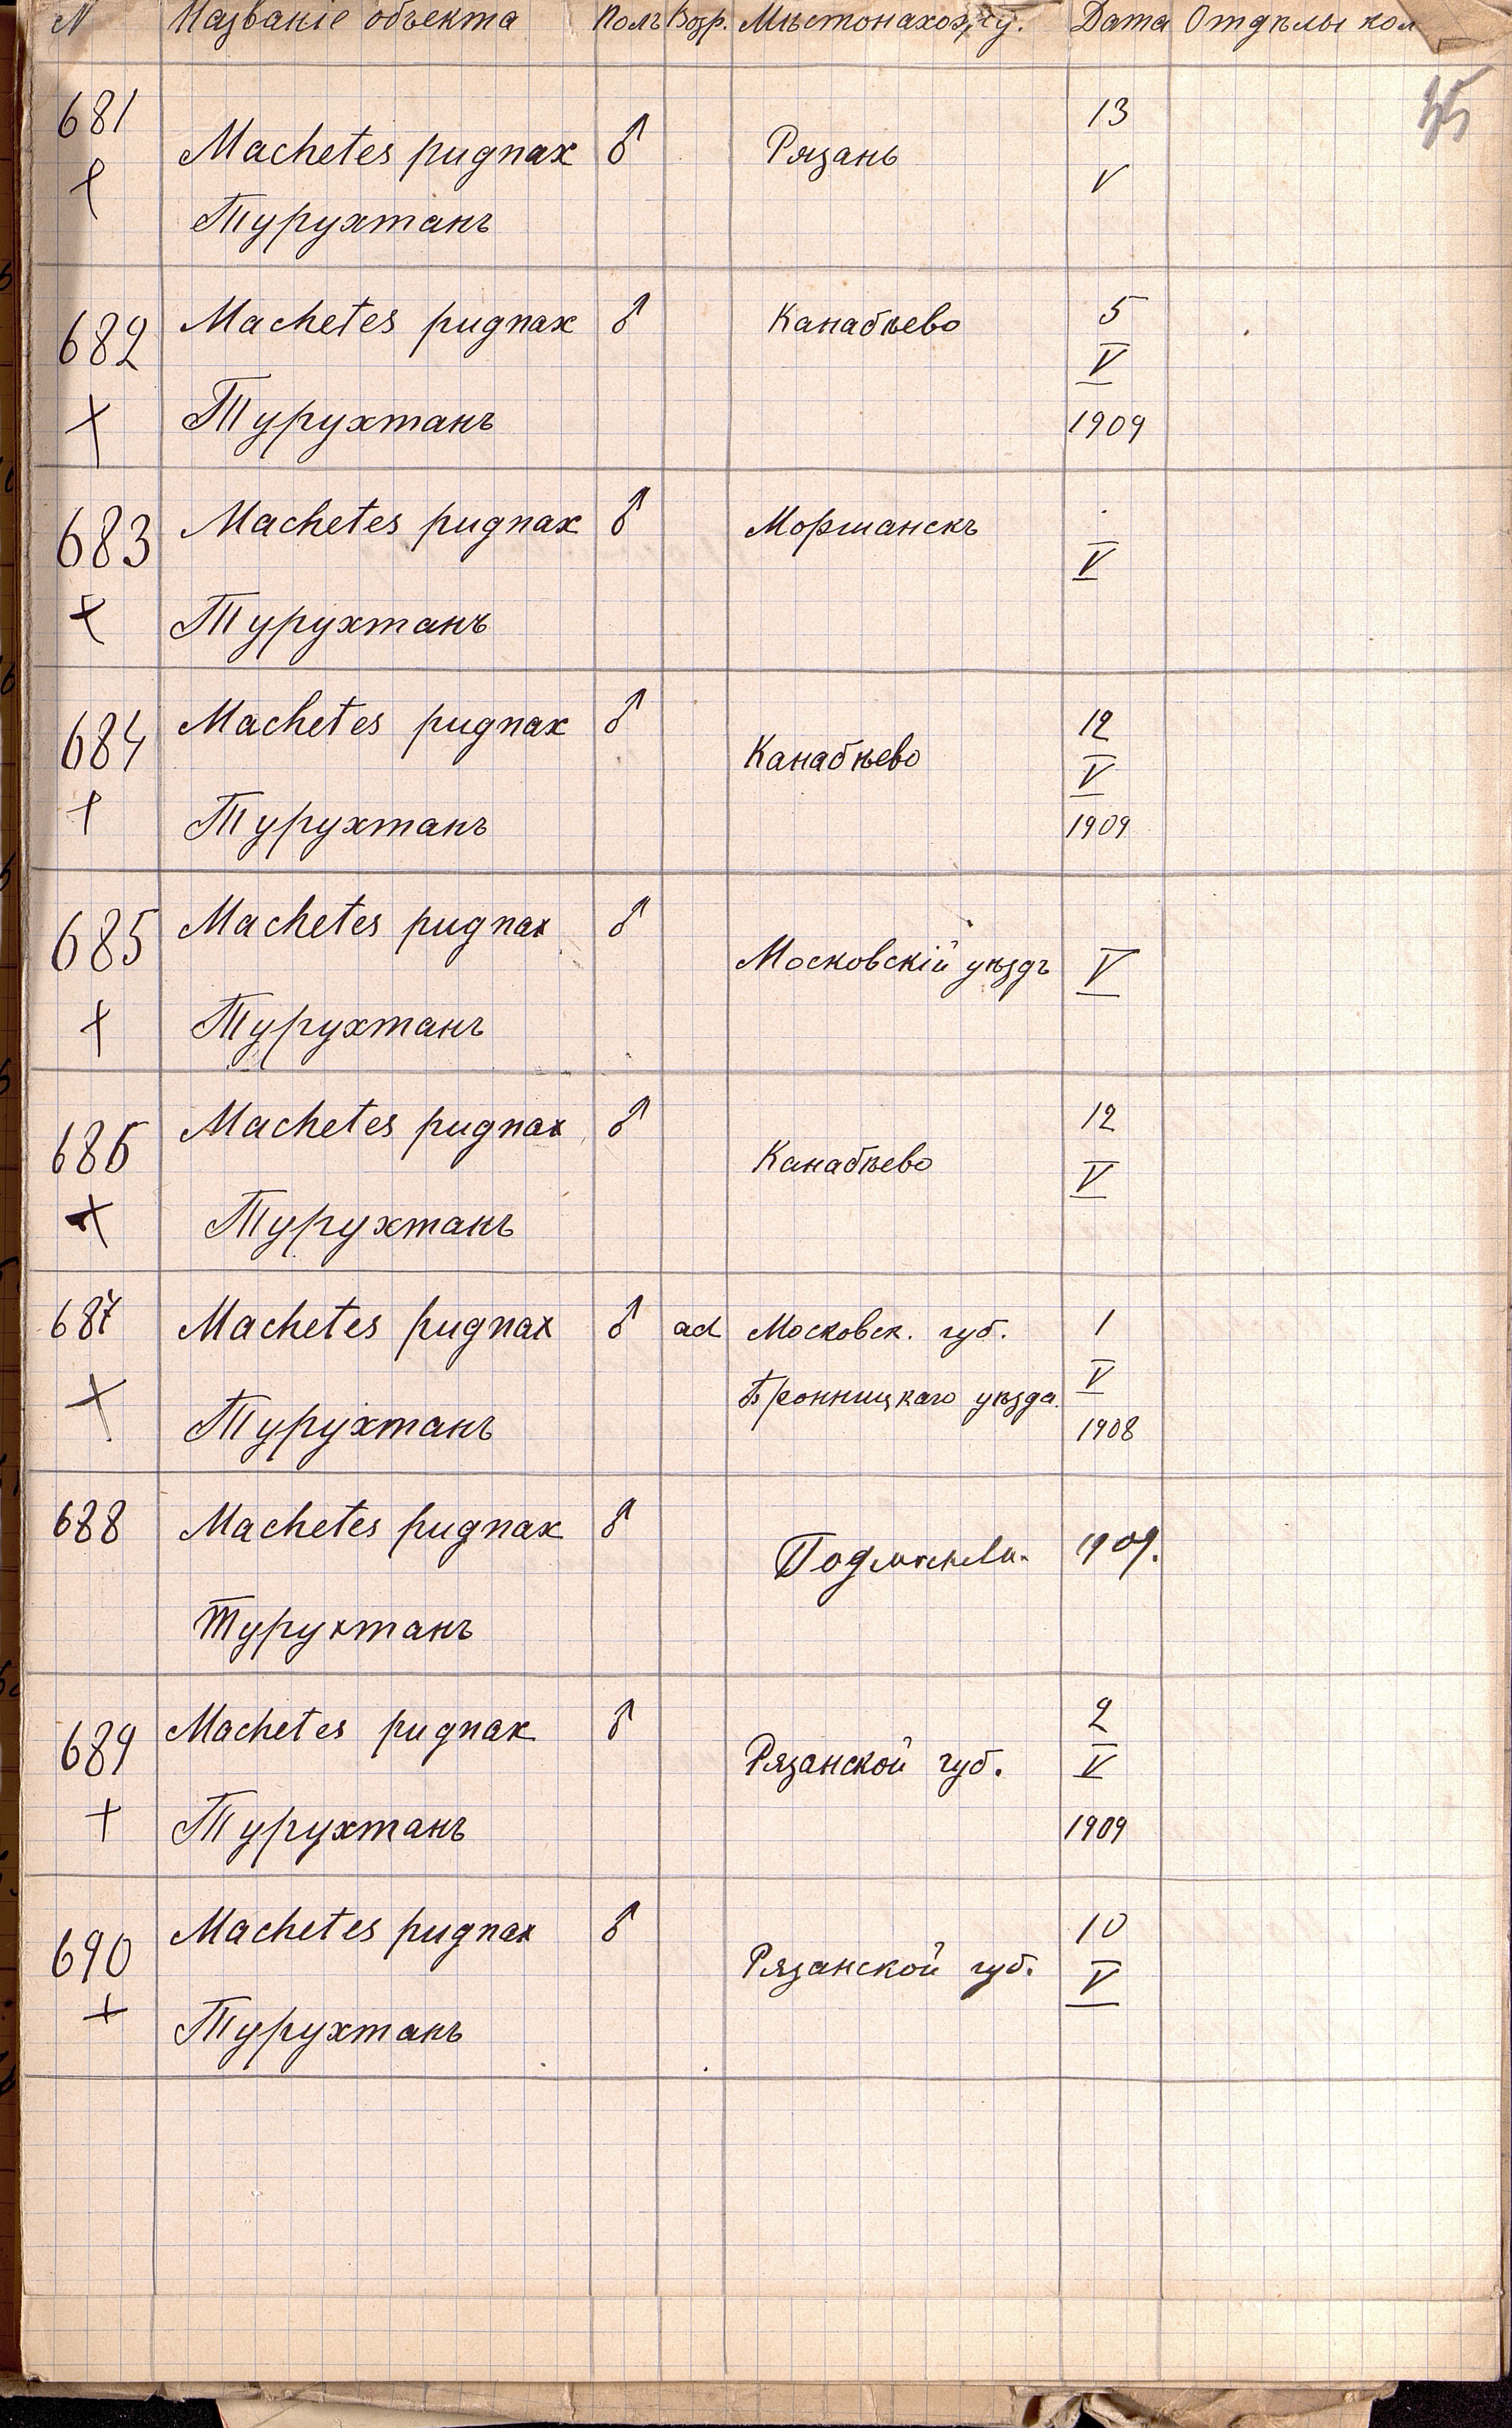 N Названіе объекта Полъ Возр. Мѣстонахожд. Дата Отдѣлы кол
681 Machetes pugnax ♂ Рязань 13
+ Турухтанъ V
682 Machetes pugnax ♂ Канабѣево 5
V
+ Турухтанъ 1909
683 Machetes pugnax ♂ Моршанскъ
V
+ Турухтанъ
684 Machetes pugnax ♂ Канабѣево 12
V
+ Турухтанъ 1909
685 Machetes pugnax ♂ Московскій уѣздъ V
+ Турухтанъ
686 Machetes pugnax ♂ Канабѣево 12
V
+ Турухтанъ
687 Machetes pugnax ♂ ad Московск. губ. 1
Бронницкаго уѣзда. V
+ Турухтанъ 1908
688 Machetes pugnax ♂ 1909.
Турухтанъ
689 Machetes pugnax ♂ Рязанской губ. 2
V
+ Турухтанъ 1909
690 Machetes pugnax ♂ Рязанской губ. 10
V
+ Турухтанъ